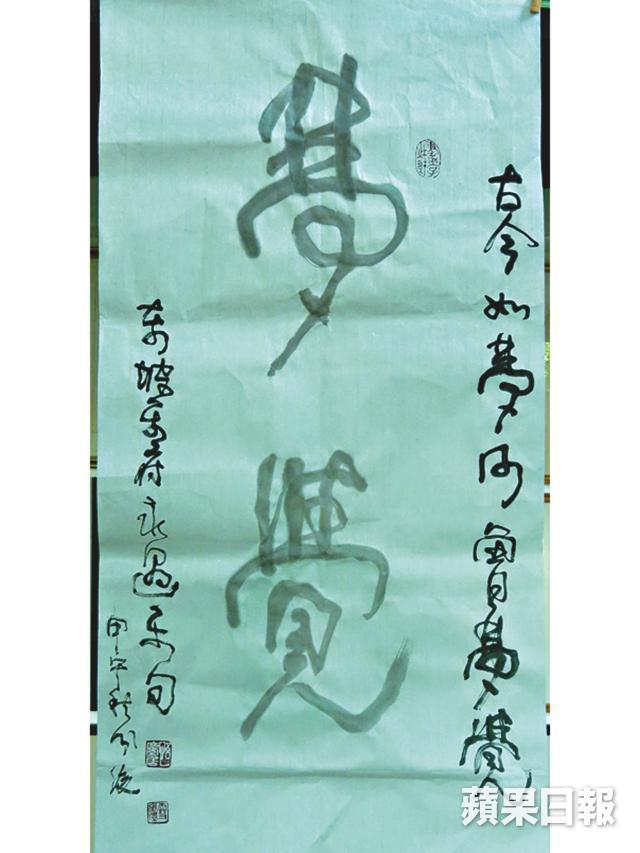 古今如夢何曾夢覺
夢覺
東坡樂府永遇樂句
甲午秋分後
蘋果日報